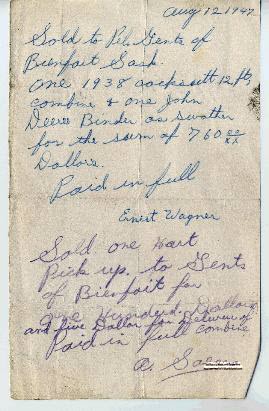 Aug 12 1947
Sold to Pete Gents of
Bienfait Sask.
One 1938 cockshutt 12 ft
combine & one John
Deere Binder as swather
for the sum of 760 00/xx
Dollars.
Paid in full
Ernest Wagner
Sold one Hart
Pick up. to Gents
of Bienfait for
One Hundred Dollars
and five Dollar for return of
Paid in full combine